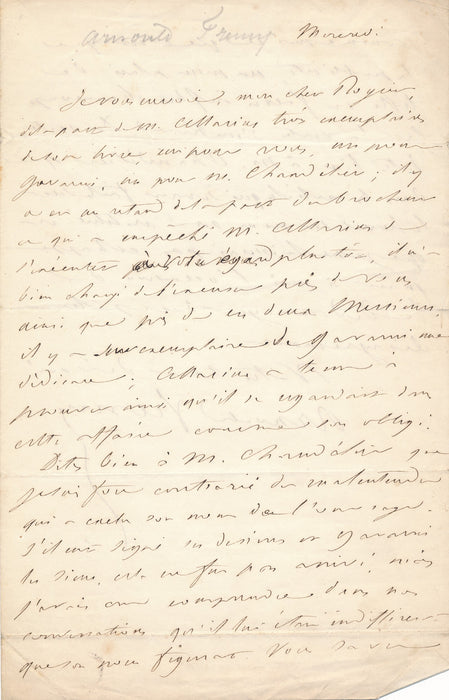 Arnould Fremy Mercredi
Je vous envoie, mon cher Rogier,
de la part de M. Marius trois exemplaires
de son livre, un pour vous, un pour
Gavarni, un pour M. Chandelier ; il y
a eu un retard de la part du brocheur
ce qui a empêché M. Marius de
s'exécuter à votre égard plus tôt, il m'a
bien chargé de l'excuser près de vous
ainsi que près de ces deux Messieurs
il y a sur exemplaire de Gavarni une
dédicace ; Marius a tenu à
prouver ainsi qu'il se regardait dans
cette affaire comme son obligé.
Dites bien à M. Chandelier que
je suis fort contrarié du malentendu
qui a exclu son nom de l'ouvrage.
S'il eut signé ses dessins et Gavarni
les siens, cela ne fut pas arrivé, mais
j'avais cru comprendre dans nos
conversations qu'il lui était indifférent
que son nom figurât vous savez